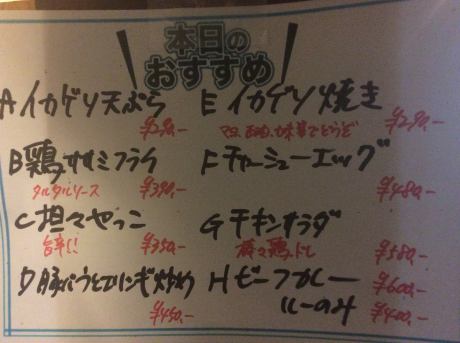 本日の
おすすめ
A イカゲソ天ぷら
¥290,-
B 鶏ササミフライ
タルタルソース
¥390,-
C 坦々やっこ
旨辛!!
¥350,-
D 豚バラとエリンギ炒め
¥450,-
E イカゲソ焼き
マヨ、醤油、七味でどうぞ
¥290,-
F チャーシューエッグ
¥480,-
G チキンサラダ
¥580,-
H ビーフカレー
¥600,-
ルーのみ
¥400,-